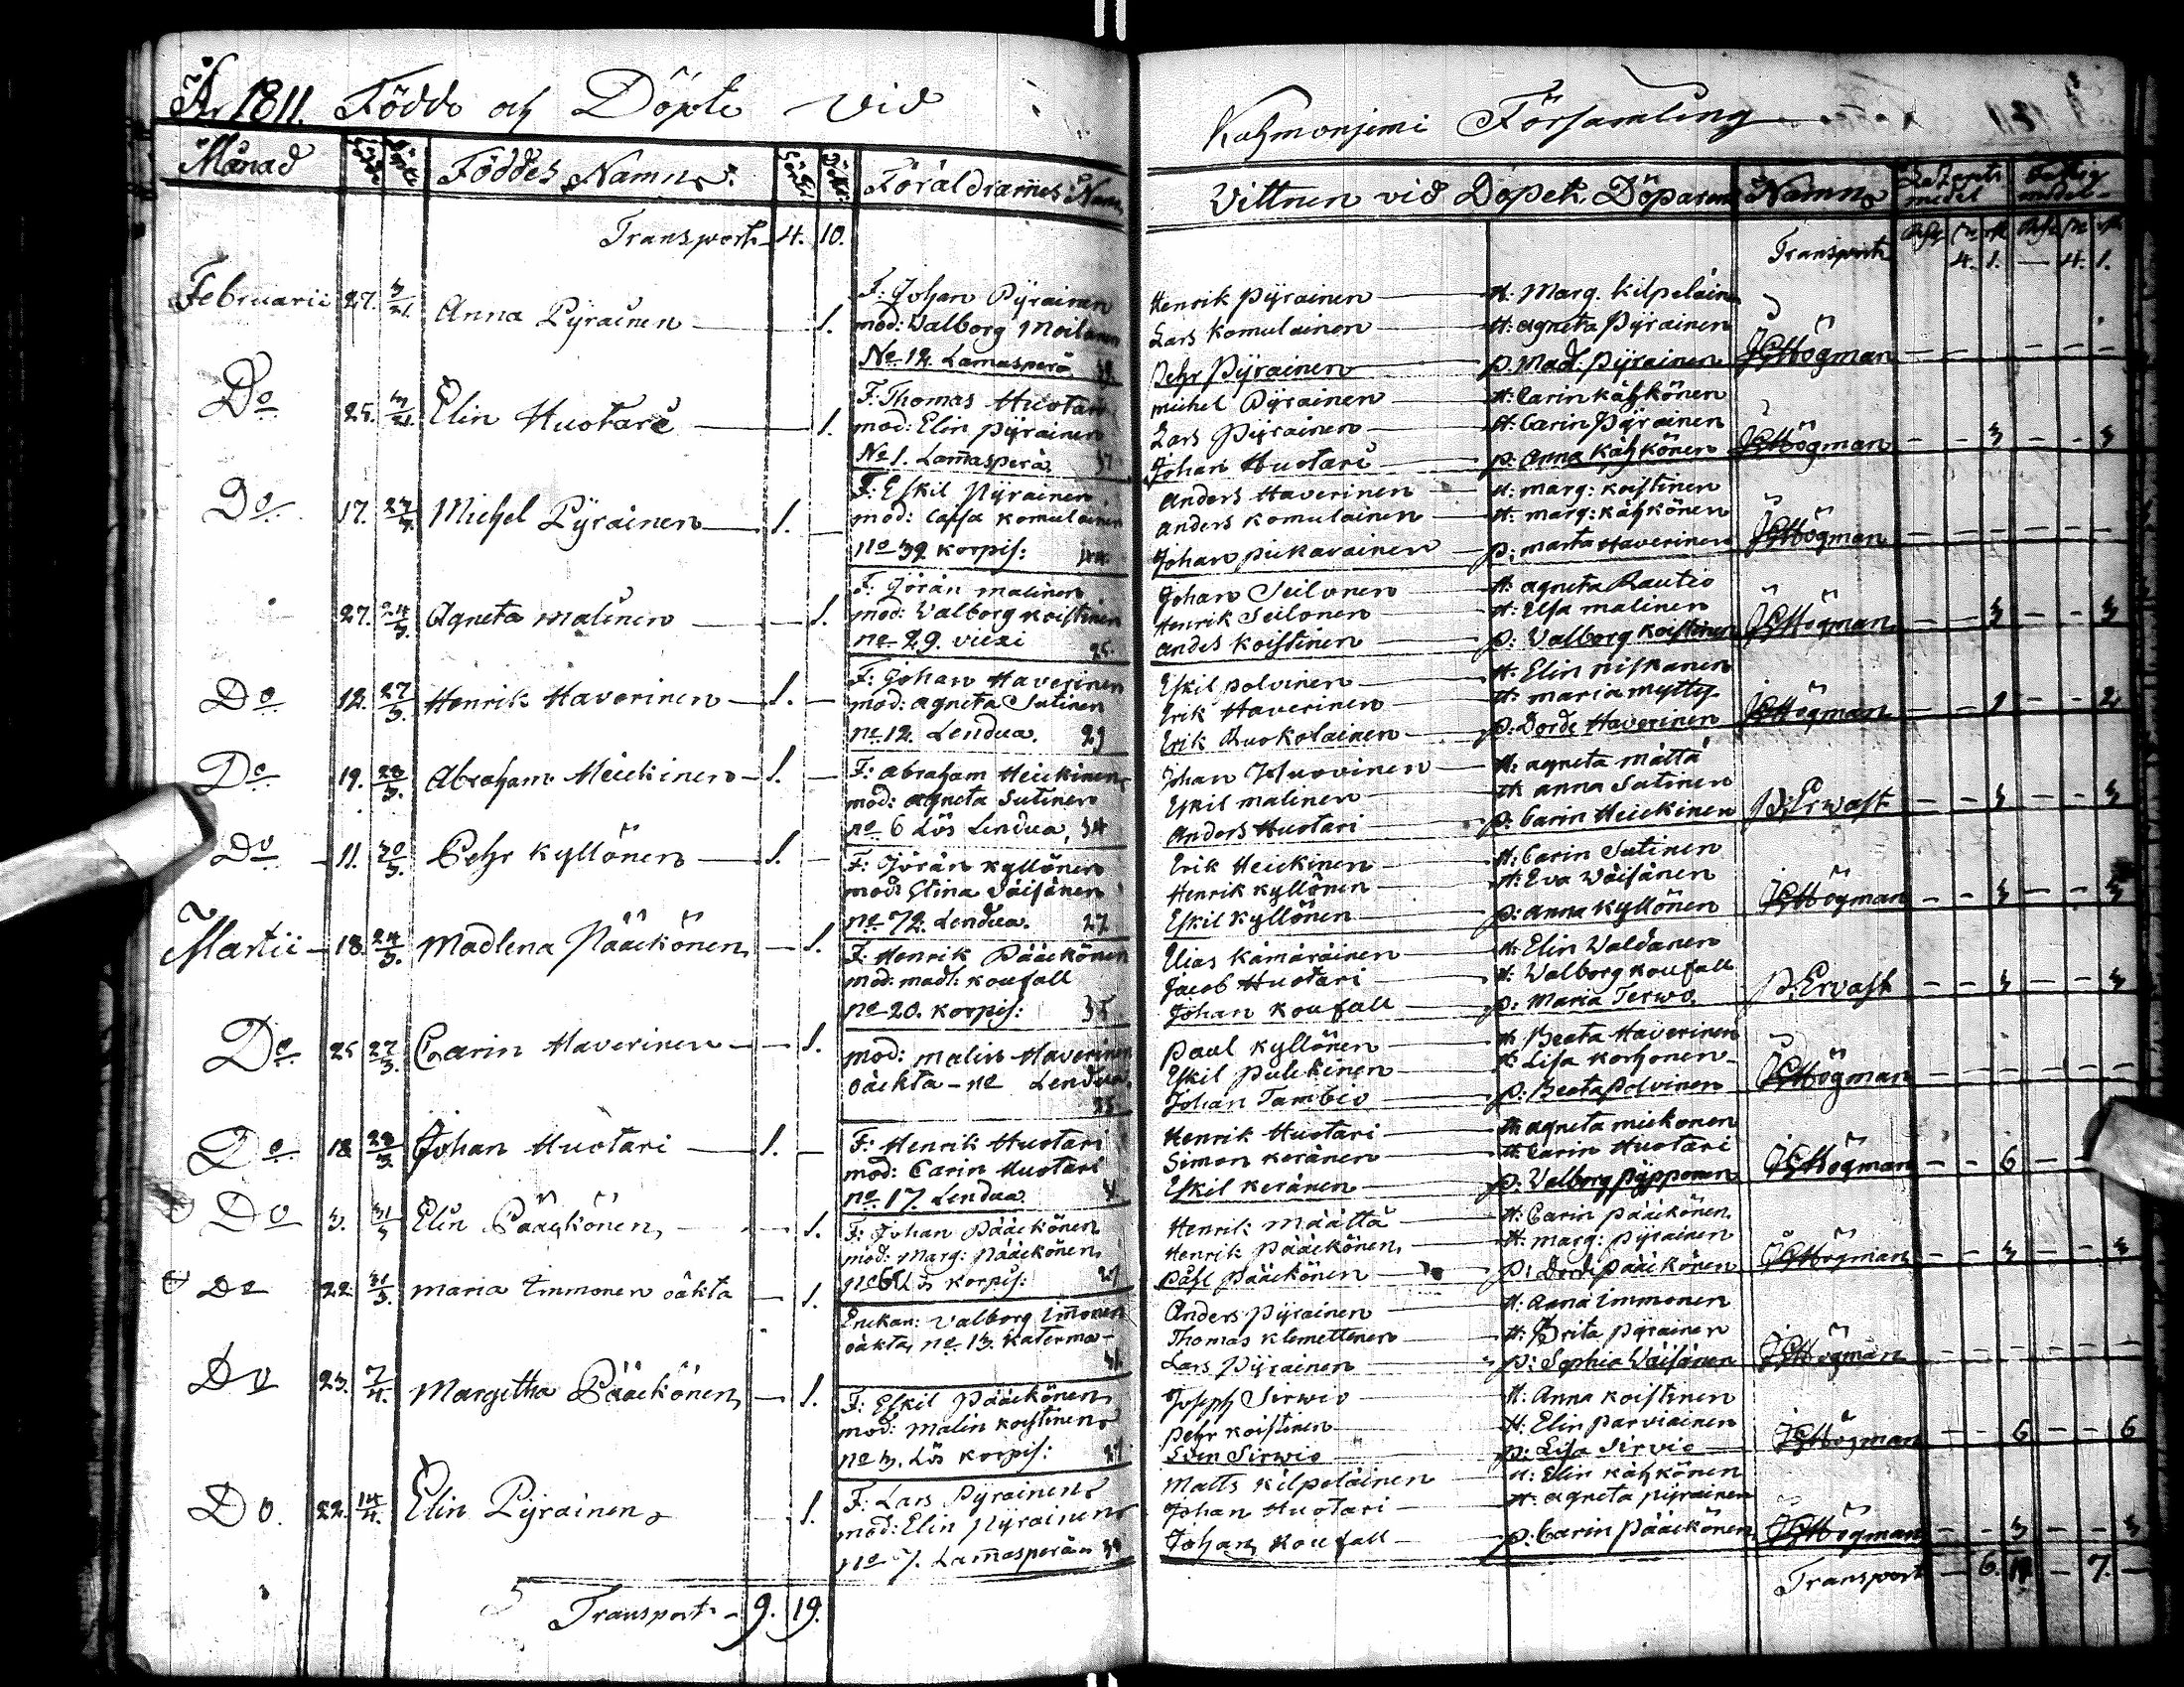 År 1811. Födde och Döpte vid
Månad Födde Döpte Föddes Namn. Söner Döttr. Föräldrarnes Namn
Transport 4. 10.
Februarii 27. 3/21. Anna Pyrainen 1.
F: Johan Pyrainen
mod: Walborg Moilanen
No 12. Lamasperä 39.
Do 25. 3/21. Elin Huotari 1.
F: Thomas Huotari
mod: Elin Pyrainen
No 1. Lamasperä 37
Do 17. 24/3. Michel Pyrainen 1.
F: Eskil Pyrainen
mod: Caisa Komulainen
No 32 Korpis:
27. 24/3. Agneta Malinen 1.
F: Göran Malinen
mod: Walborg Koistinen
no 29. viexi 25.
Do 12. 27/3. Henrik Haverinen 1.
F: Johan Haverinen
mod: agneta Sutinen
no 12. Lendua. 29
Do 19. 28/3. Abraham Heickinen 1.
F: abraham Heickinen
mod: agneta Sutinen
no 6 Lös Lendua, 34
Do 11. 30/3. Pehr Kyllönen 1.
F: Göran Kyllönen
mod: Stina Väisänen
no 72. Lendua. 27
Martii 18. 24/3. Madlena Pääckönen 1.
F: Henrik Pääckönen
mod: madl: Koufall
no 20. Korpis: 35
Do 25 27/3. Carin Haverinen 1.
mod: malin Haverinen
oäckta - no Lendua.
33
Do 18 28/3. Johan Huotari 1.
F: Henrik Huotari
mod: Carin Huotari
no. 17. Lendua
Do 3. 31/3 Elin Pääckönen 1.
F: Johan Pääckönen
mod: Marg: Pääckönen
no 6 Lös Korpis: 27
Do 22. 31/3. Maria Immonen oäkta 1.
Enckan: Valborg Immonen
oäkta, no 13. Katerma
31
Do 23. 7/4. Margetha Pääckönen 1.
F: Eskil Pääckönen
mod: Malin Koistinen
no 3. Lös Korpis: 27
Do. 22. 14/4. Elin Pyrainen 1.
F: Lars Pyrainen
mod: Elin Pyrainen
No 7. Lamasperä 39
Transport 9. 19.
Kuhmonjemi Församling
Vittnen vid Dopet Döparens Namn Lazarets medel Fattig medel
Transport 4. 1. — 4. 1.
Henrik Pyrainen — H: Marg. Kilpeläinen
Lars Komulainen — H: agneta Pyrainen
Pehr Pyrainen — p: Mad: Pyrainen JG Högman — — — — — —
Michel Pyrainen — H: Carin Kähkönen
Lars Pyrainen — H: Carin Pyrainen
Johan Huotari — p: Anna Kähkönen JG Högman — — 3 — — 3
Anders Haverinen — H: marg: Koistinen
Anders Komulainen — H: marg: Kähkönen
Johan Pikkarainen — p: marta Haverinen JG Högman — — — — — —
Johan Seilonen — H: agneta Rautio
Henrik Seilonen — H: Elsa malinen
Anders Koistinen — p: Valborg Koistinen JG Högman — — 3 — — 3
Eskil Polvinen — H: Elin Niskanen
Erik Haverinen — H: maria mylly
Erik Ruokolainen — p: Dorde Haverinen JG Högman — — 1 — — 2
Johan Huovinen — H: agneta määttä
Eskil malinen — H: anna Sutinen
Anders Huotari — p: Carin Heickinen P: Erwast — — 3 — — 3
Erik Heickinen — H: Carin Sutinen
Henrik Kyllönen — H: Eva Wäisänen
Eskil Kyllönen — p: anna Kyllönen JG Högman — — 3 — — 3
Elias Kämäräinen — H: Elin Waldanen
Jacob Huotari — H: Walborg Koufall
Johan Koufall — p: Maria Terwo P: Ervast — — 3 — — 3
Paul Kyllönen — H: Beata Haverinen
Eskil Pulckinen — H: Lisa Korhonen
Johan Tambio — p: Beata Polvinen JG Högman — — — — — —
Henrik Huotari — H: agneta mickonen
Simon Keränen — H: Carin Huotari
Eskil Keränen — p: Valborg Pypponen JG Högman — — 6 — —
Henrik Määttä — H: Carin Pääckönen
Henrik Pääckönen — H: marg: Pyrainen
Påhl Pääckönen — p: Dordi Pääckönen JG Högman — — 3 — — 3
Anders Pyrainen — H: Anna Immonen
Thomas Klemettinen — H: Brita Pyrainen
Lars Pyrainen — p: Sophia Väisänen JG Högman — — — — — —
Joseph Serwio — H: Anna Koistinen
Pehr Koistinen — H: Elin Parviainen
Sven Sirwio — p: Lisa Sirvio JG Högman — — 6 — — 6
Matts Kilpeläinen — H: Elin Kähkönen
Johan Huotari — H: agneta Pyrainen
Johan Koufall — p: Carin Pääckönen JG Högman — — 3 — — 3
Transport — 6. — 7. —